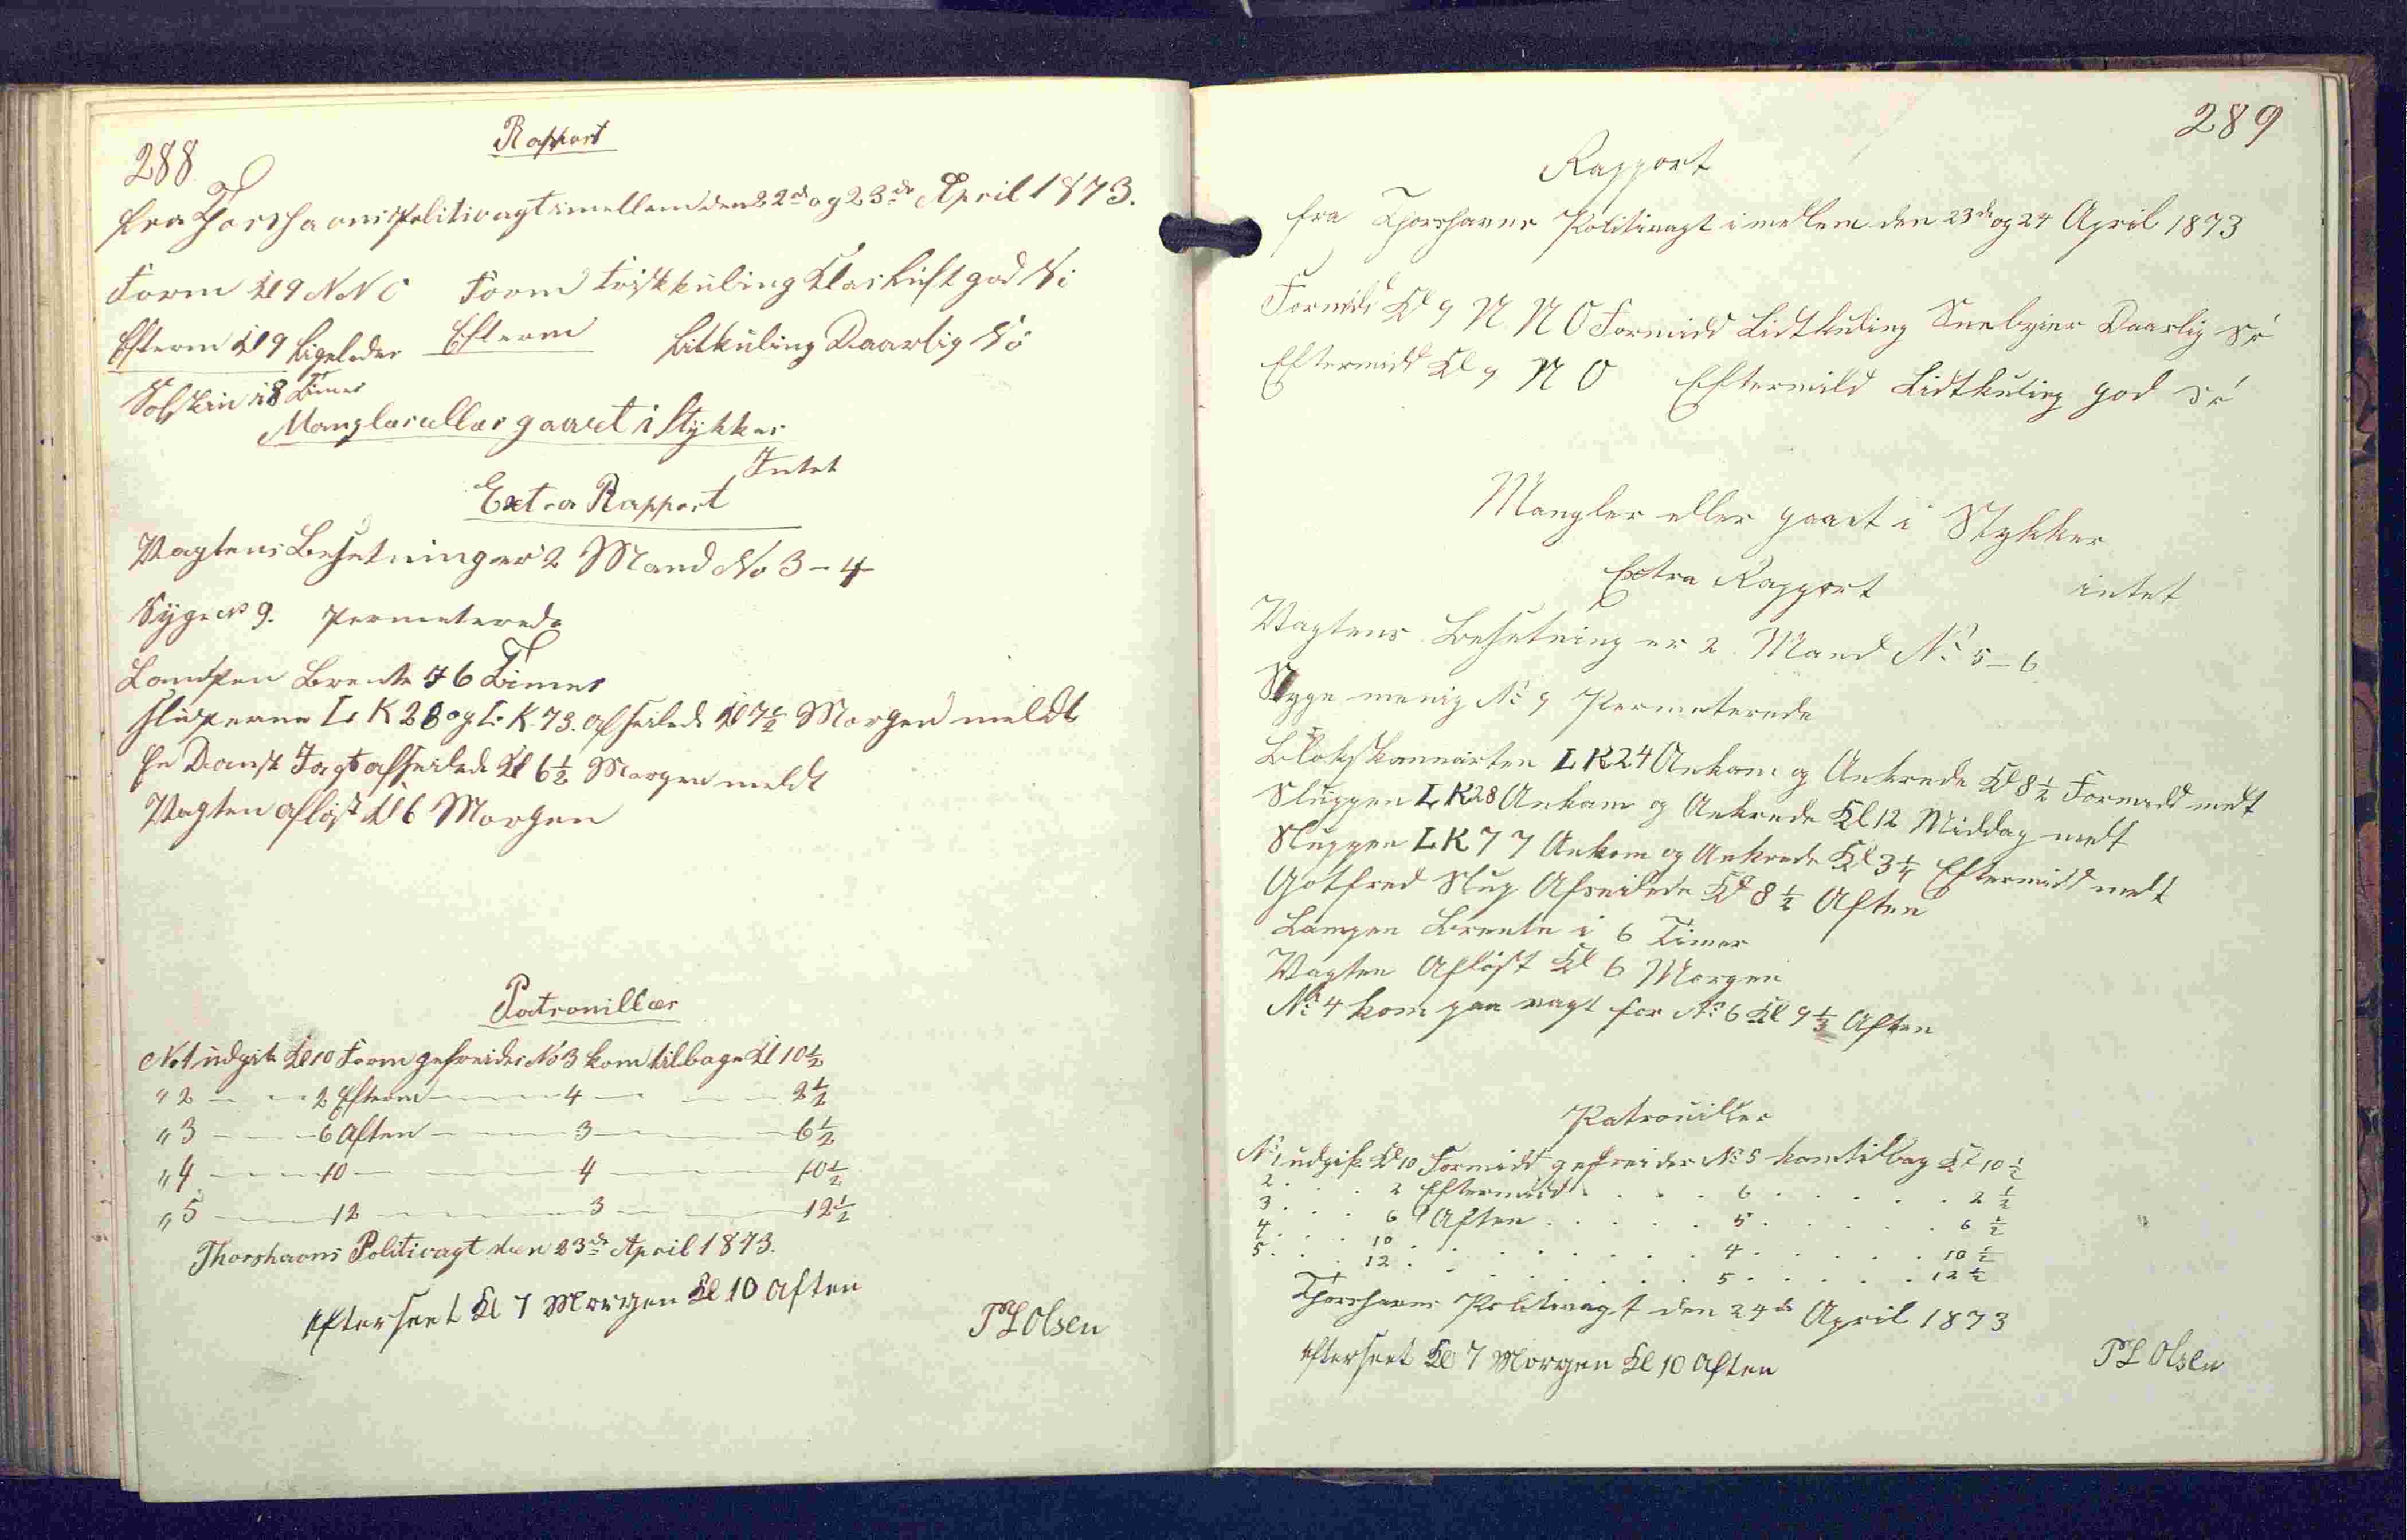 288
Rapport
fra Thorshavns Politivagt imellem den 22de og 23de April 1873.
Form Kl 9 N N O Form Friskkuling Klar Luft god Sö
Efterm Kl 9 ligeledes Efterm Litkuling Daarlig Sö
Solskin i 8 Timer
Mangler eller gaaet i Stykker
Intet
Extra Rapport
Vagtens Besetning er 2 Mand No 3 - 4
Syge No 9. Permeterede
Lampen Brente i 6 Timer
Slupperne L K 28 og L K 73. afseilede Kl 7½ Morgen meldt
En Dansk Jagt afseilede Kl 6½ Morgen meldt
Vagten aflöst Kl 6 Morgen
Patrouiller
No 1 udgik Kl 10 Form gefreider No 3 kom tilbage Kl 10½
" 2 — — 2 Efterm — 4 — — 2½
" 3 — — 6 Aften — 3 — — 6½
" 4 — — 10 — — 4 — — 10½
" 5 — — 12 — — 3 — — 12½
Thorshavns Politivagt den 23de April 1873.
Efterseet Kl 7 Morgen Kl 10 Aften
P L Olsen
289
Rapport
fra Thorshavns Politivagt imellem den 23de og 24 April 1873
Formidd Kl 9 N N O Formidd Lidtkuling Sneebyier Daarlig Sö
Eftermidd Kl 9 N O Eftermidd Lidtkuling god Sö
Mangler eller gaaet i Stykker
Extra Rapport intet
Vagtens Besetning er 2 Mand No 5 - 6
Syge menig No 9 Permeterede
L K 24 Ankom og Ankrede Kl 8½ Formidd melt
Sluppen L K 28 Ankom og Ankrede Kl 12 Middag melt
Sluppen L K 77 Ankom og Ankrede Kl 3¼ Eftermidd melt
Gotfred Slup Afseilede Kl 8½ Aften
Lampen Brente i 6 Timer
Vagten Aflöst Kl 6 Morgen
No 4 kom paa vagt for No 6 Kl 9½ Aften
Patrouiller
No 1 udgik Kl 10 Formidd gefreider No 5 kom tilbag Kl 10½
2 . . . 2 Eftermidd . . . . 6 . . . . . 2½
3 . . . 6 Aften . . . . . 5 . . . . . 6½
4 . . . 10 . . . . . . . 4 . . . . . 10½
5 . . . 12 . . . . . . . 5 . . . . . 12½
Thorshavns Politivagt den 24de April 1873
Efterseet Kl 7 Morgen Kl 10 Aften
P L Olsen